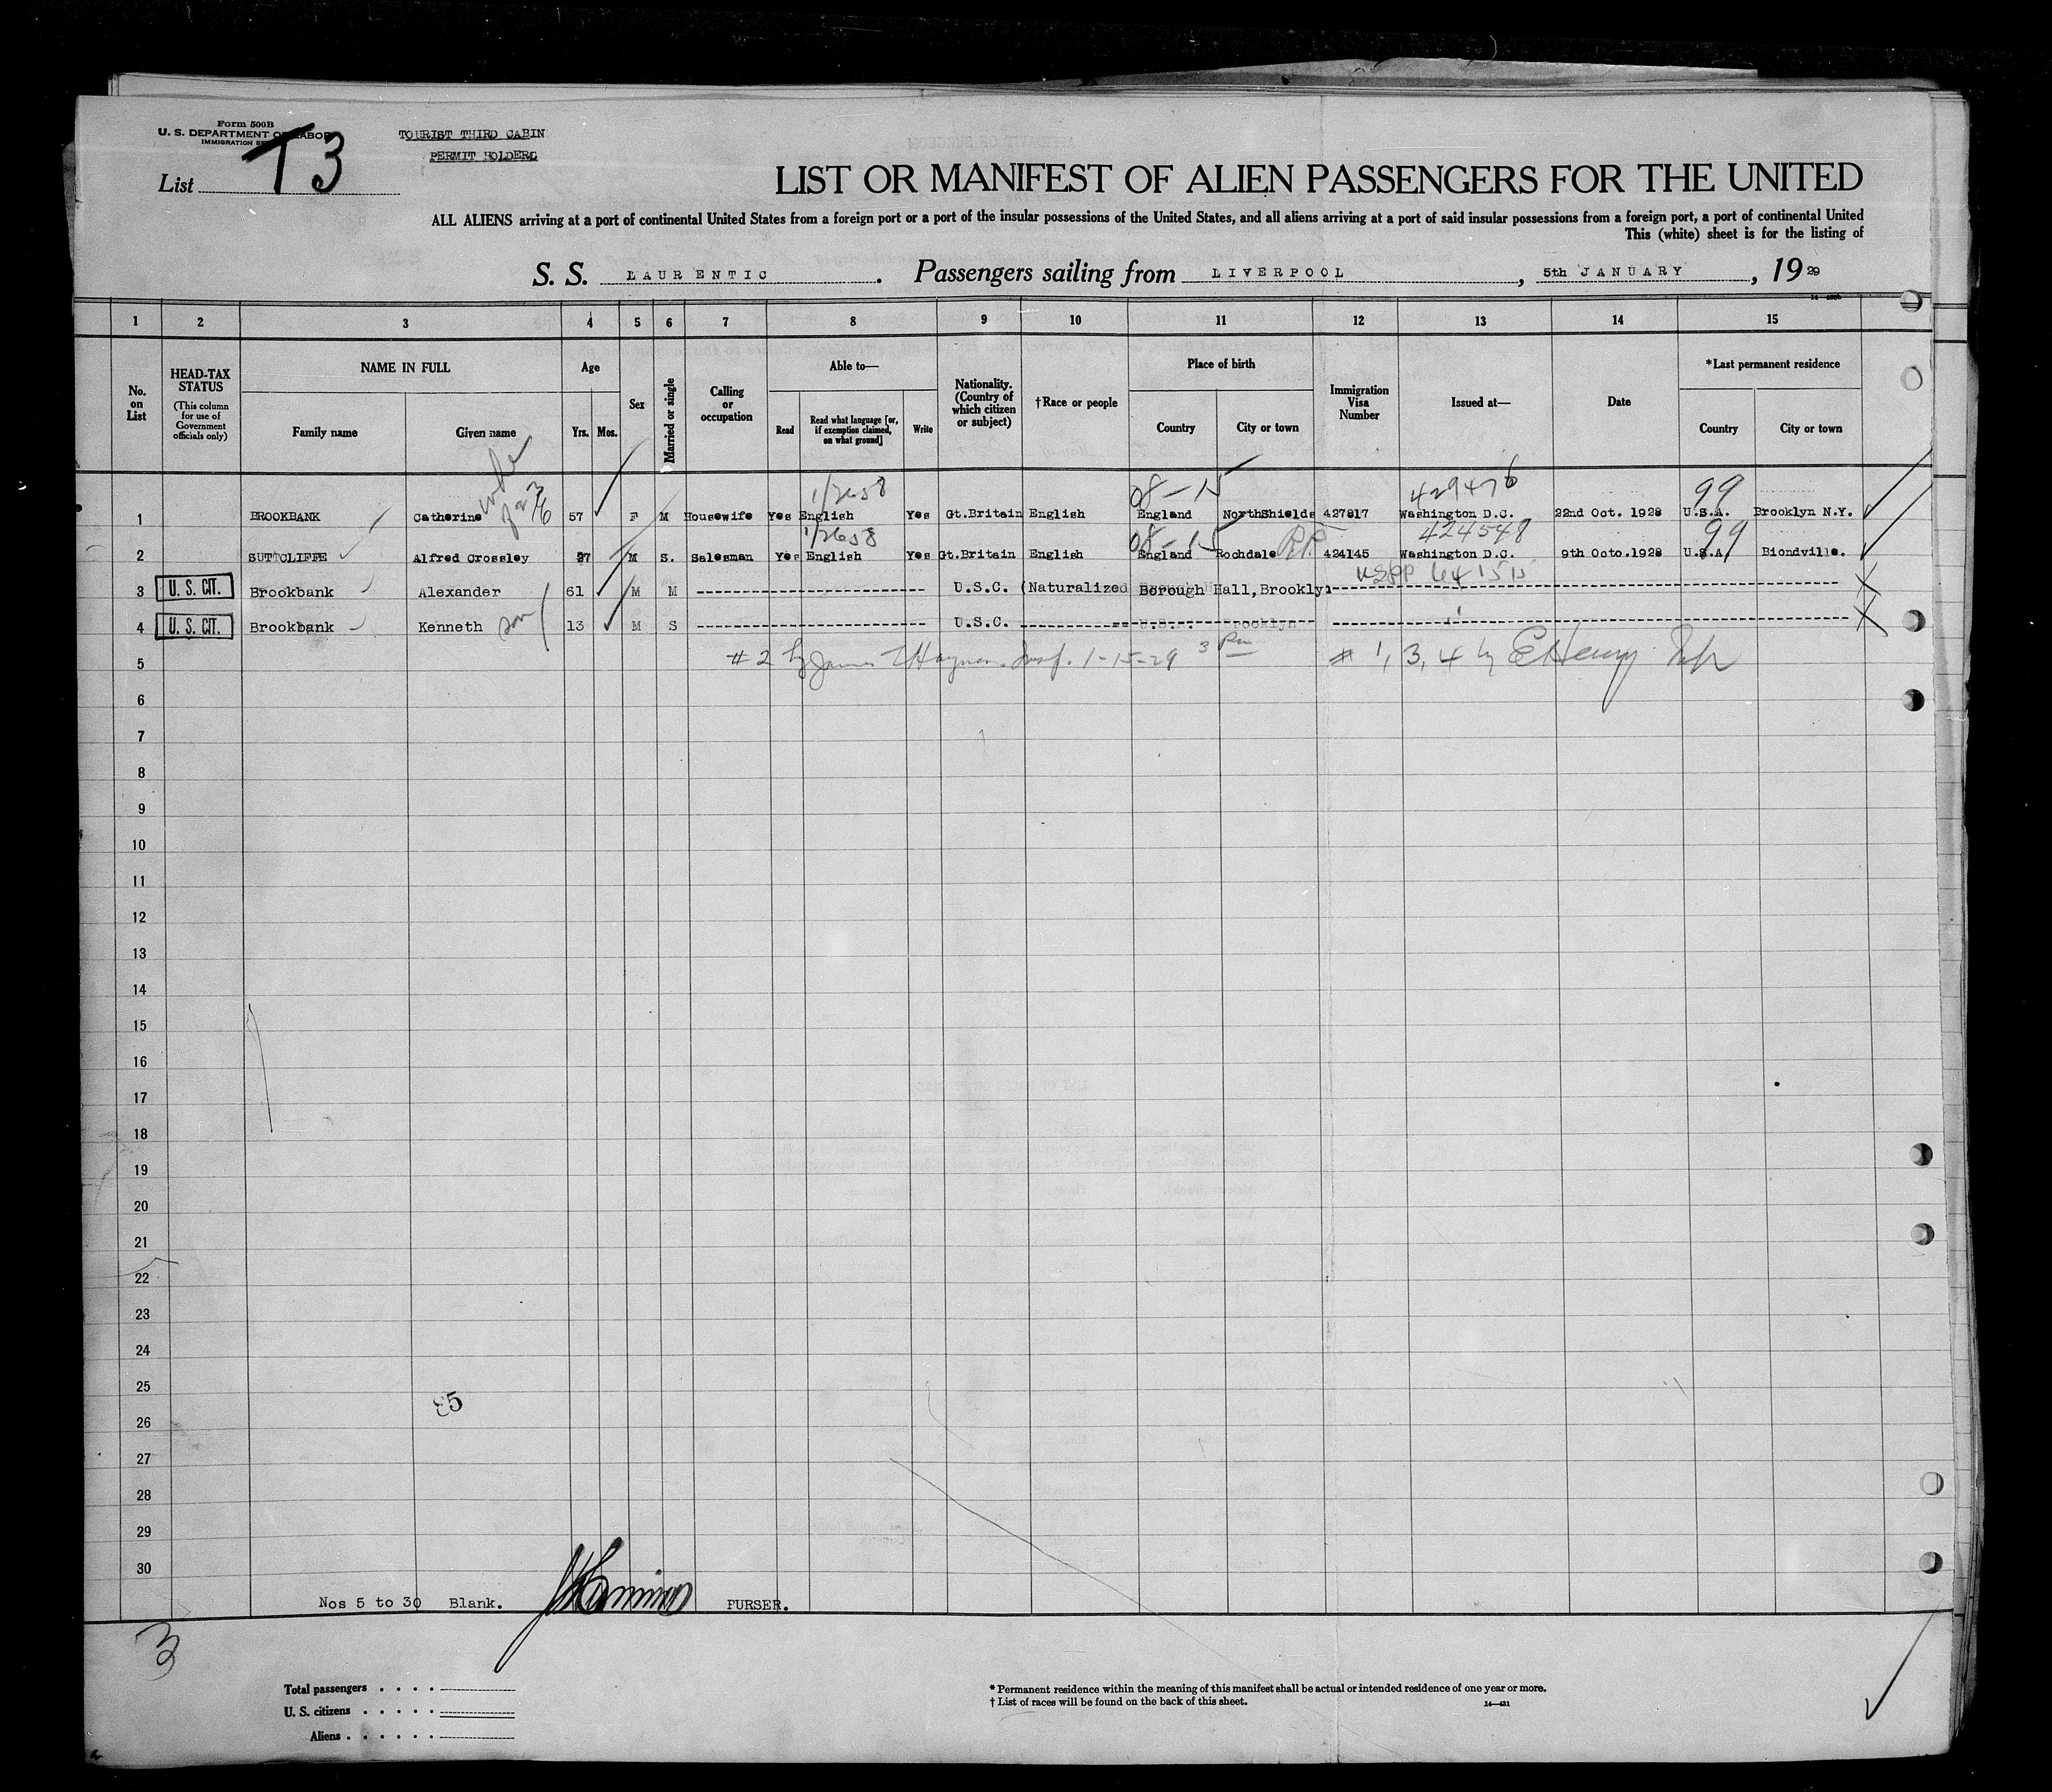 Form 500B
U. S. DEPARTMENT OF LABOR
IMMIGRATION
TOURIST THIRD CABIN
PERMIT HOLDERS
List T3
LIST OR MANIFEST OF ALIEN PASSENGERS FOR THE UNITED
ALL ALIENS arriving at a port of continental United States from a foreign port or a port of the insular possessions of the United States, and all aliens arriving at a port of said insular possessions from a foreign port, a port of continental United
This (white) sheet is for the listing of
S. S. LAURENTIC. Passengers sailing from LIVERPOOL, 5th JANUARY, 1929
1 2 3 4 5 6 7 8 9 10 11 12 13 14 15
No. on List
HEAD-TAX STATUS (This column for use of Government officials only)
NAME IN FULL
Family name Given name
Age
Yrs. Mos.
Sex
Married or single
Calling or occupation
Able to—
Read Read what language [or, if exemption claimed, on what ground] Write
Nationality. (Country of which citizen or subject)
†Race or people
Place of birth
Country City or town
Immigration Visa Number
Issued at—
Date
*Last permanent residence
Country City or town
wife 1/2658 08-15 429476 99
1 BROOKBANK Catherine 57 F M Housewife Yes English Yes Gt.Britain English England NorthShields 427817 Washington D.C. 22nd Oct. 1928 U.S.A. Brooklyn N.Y.
1/2658 08-15 424548 99
2 SUTTCLIFFE Alfred Crossley 27 M S. Salesman Yes English Yes Gt.Britain English England Rochdale 424145 Washington D.C. 9th Octo.1928 U.S.A Biondville.
USPP 641515
3 U. S. CIT. Brookbank Alexander 61 M M U.S.C. (Naturalized Borough Hall, Brookly
4 U. S. CIT. Brookbank Kenneth son 13 M S U.S.C. U.S.A. Brooklyn
5 # 2 by James Insp. 1-15-29 3 Pm # 1, 3, 4 by E Henry
6
7
8
9
10
11
12
13
14
15
16
17
18
19
20
21
22
23
24
25
85
26
27
28
29
30
Nos 5 to 30 Blank. PURSER.
3
Total passengers
U. S. citizens
Aliens
* Permanent residence within the meaning of this manifest shall be actual or intended residence of one year or more.
† List of races will be found on the back of this sheet.